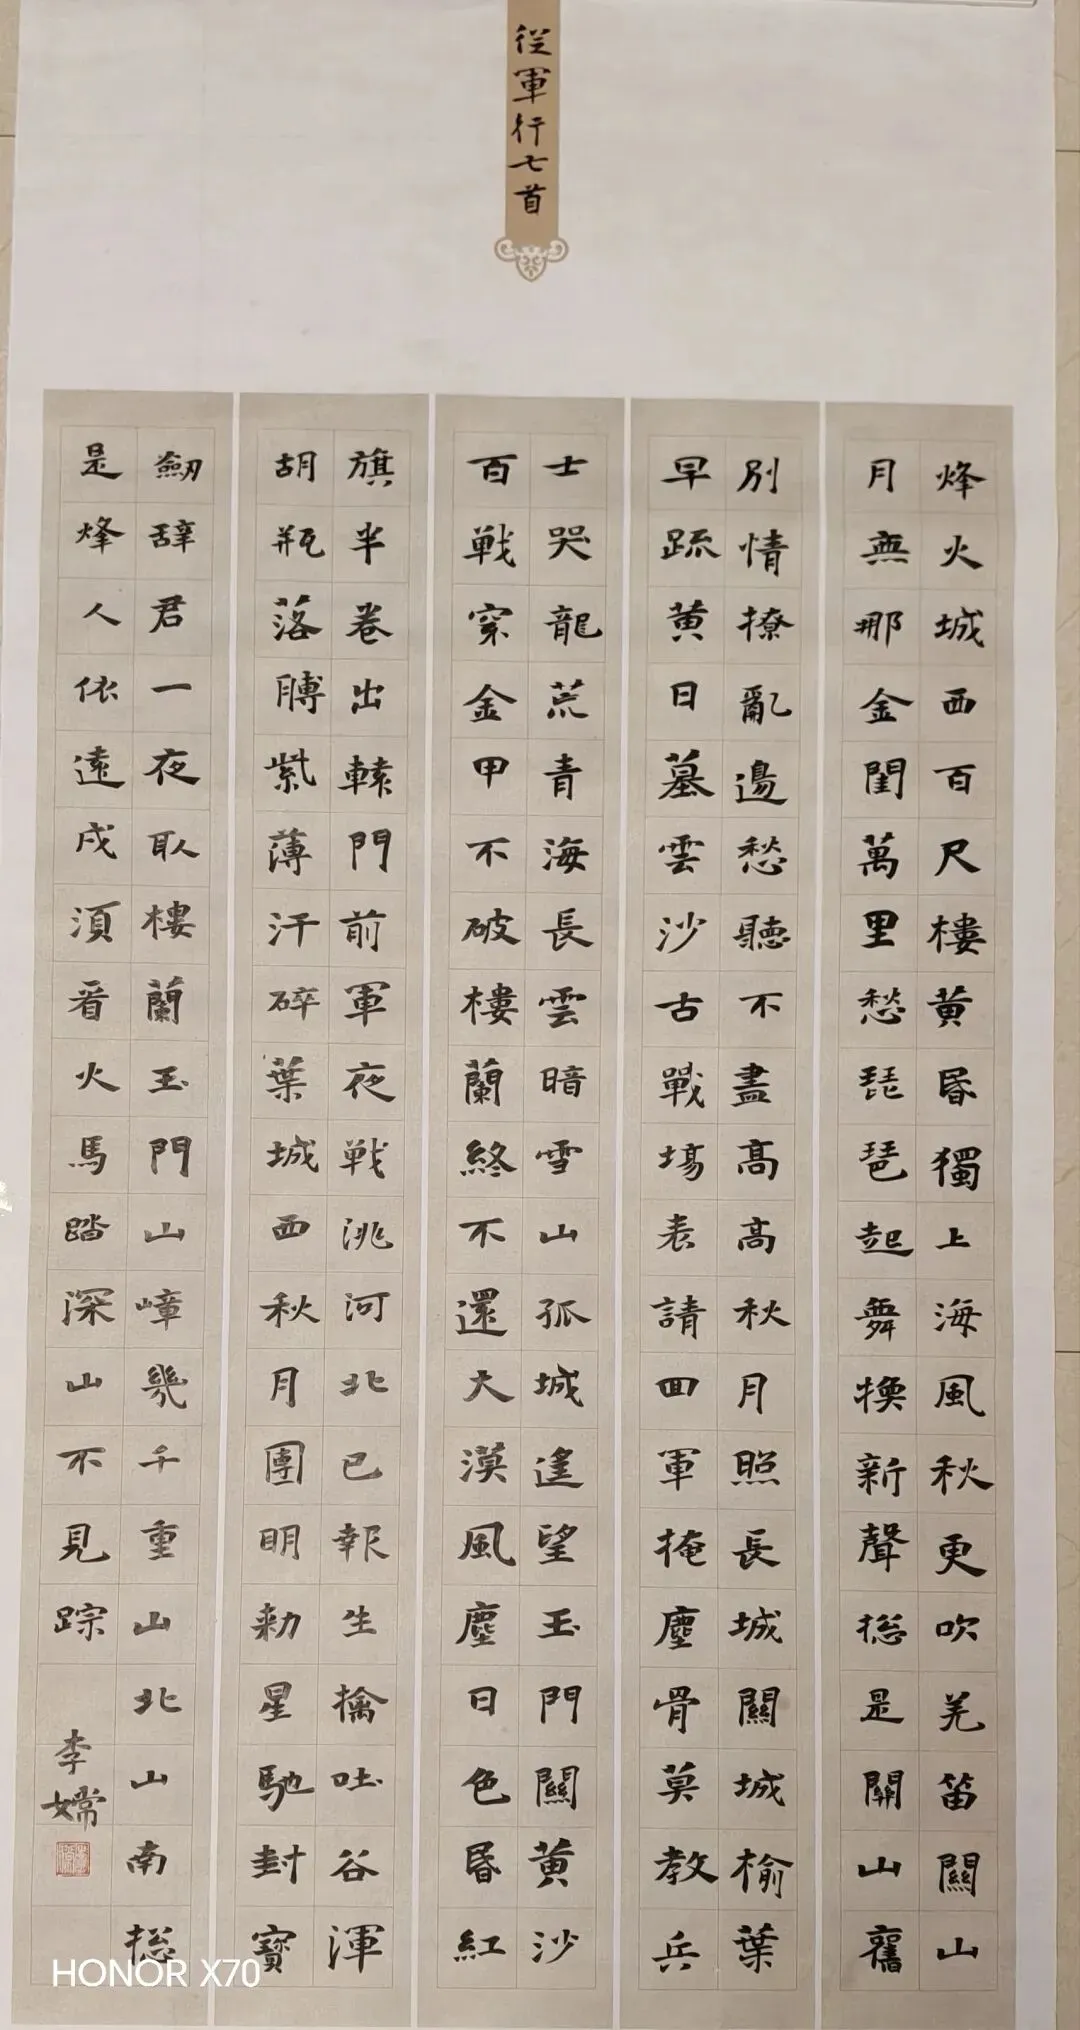 從軍行七首
烽火城西百尺樓黃昏獨上海風秋更吹羌笛關山
月無那金閨萬里愁琵琶起舞換新聲揔是關山舊
別情撩亂邊愁聽不盡高高秋月照長城關城榆葉
早疏黃日墓雲沙古戰場表請回軍掩塵骨莫教兵
士哭龍荒青海長雲暗雪山孤城遙望玉門關黃沙
百戦穿金甲不破樓蘭終不還大漠風塵日色昏紅
旗半卷出轅門前軍夜戦洮河北已報生擒吐谷渾
胡瓶落膊紫薄汗碎葉城西秋月團明勑星馳封寶
劒辭君一夜取樓蘭玉門山嶂幾千重山北山南揔
是烽人依遠戍須看火馬踏深山不見踪
李嫦
HONOR X70